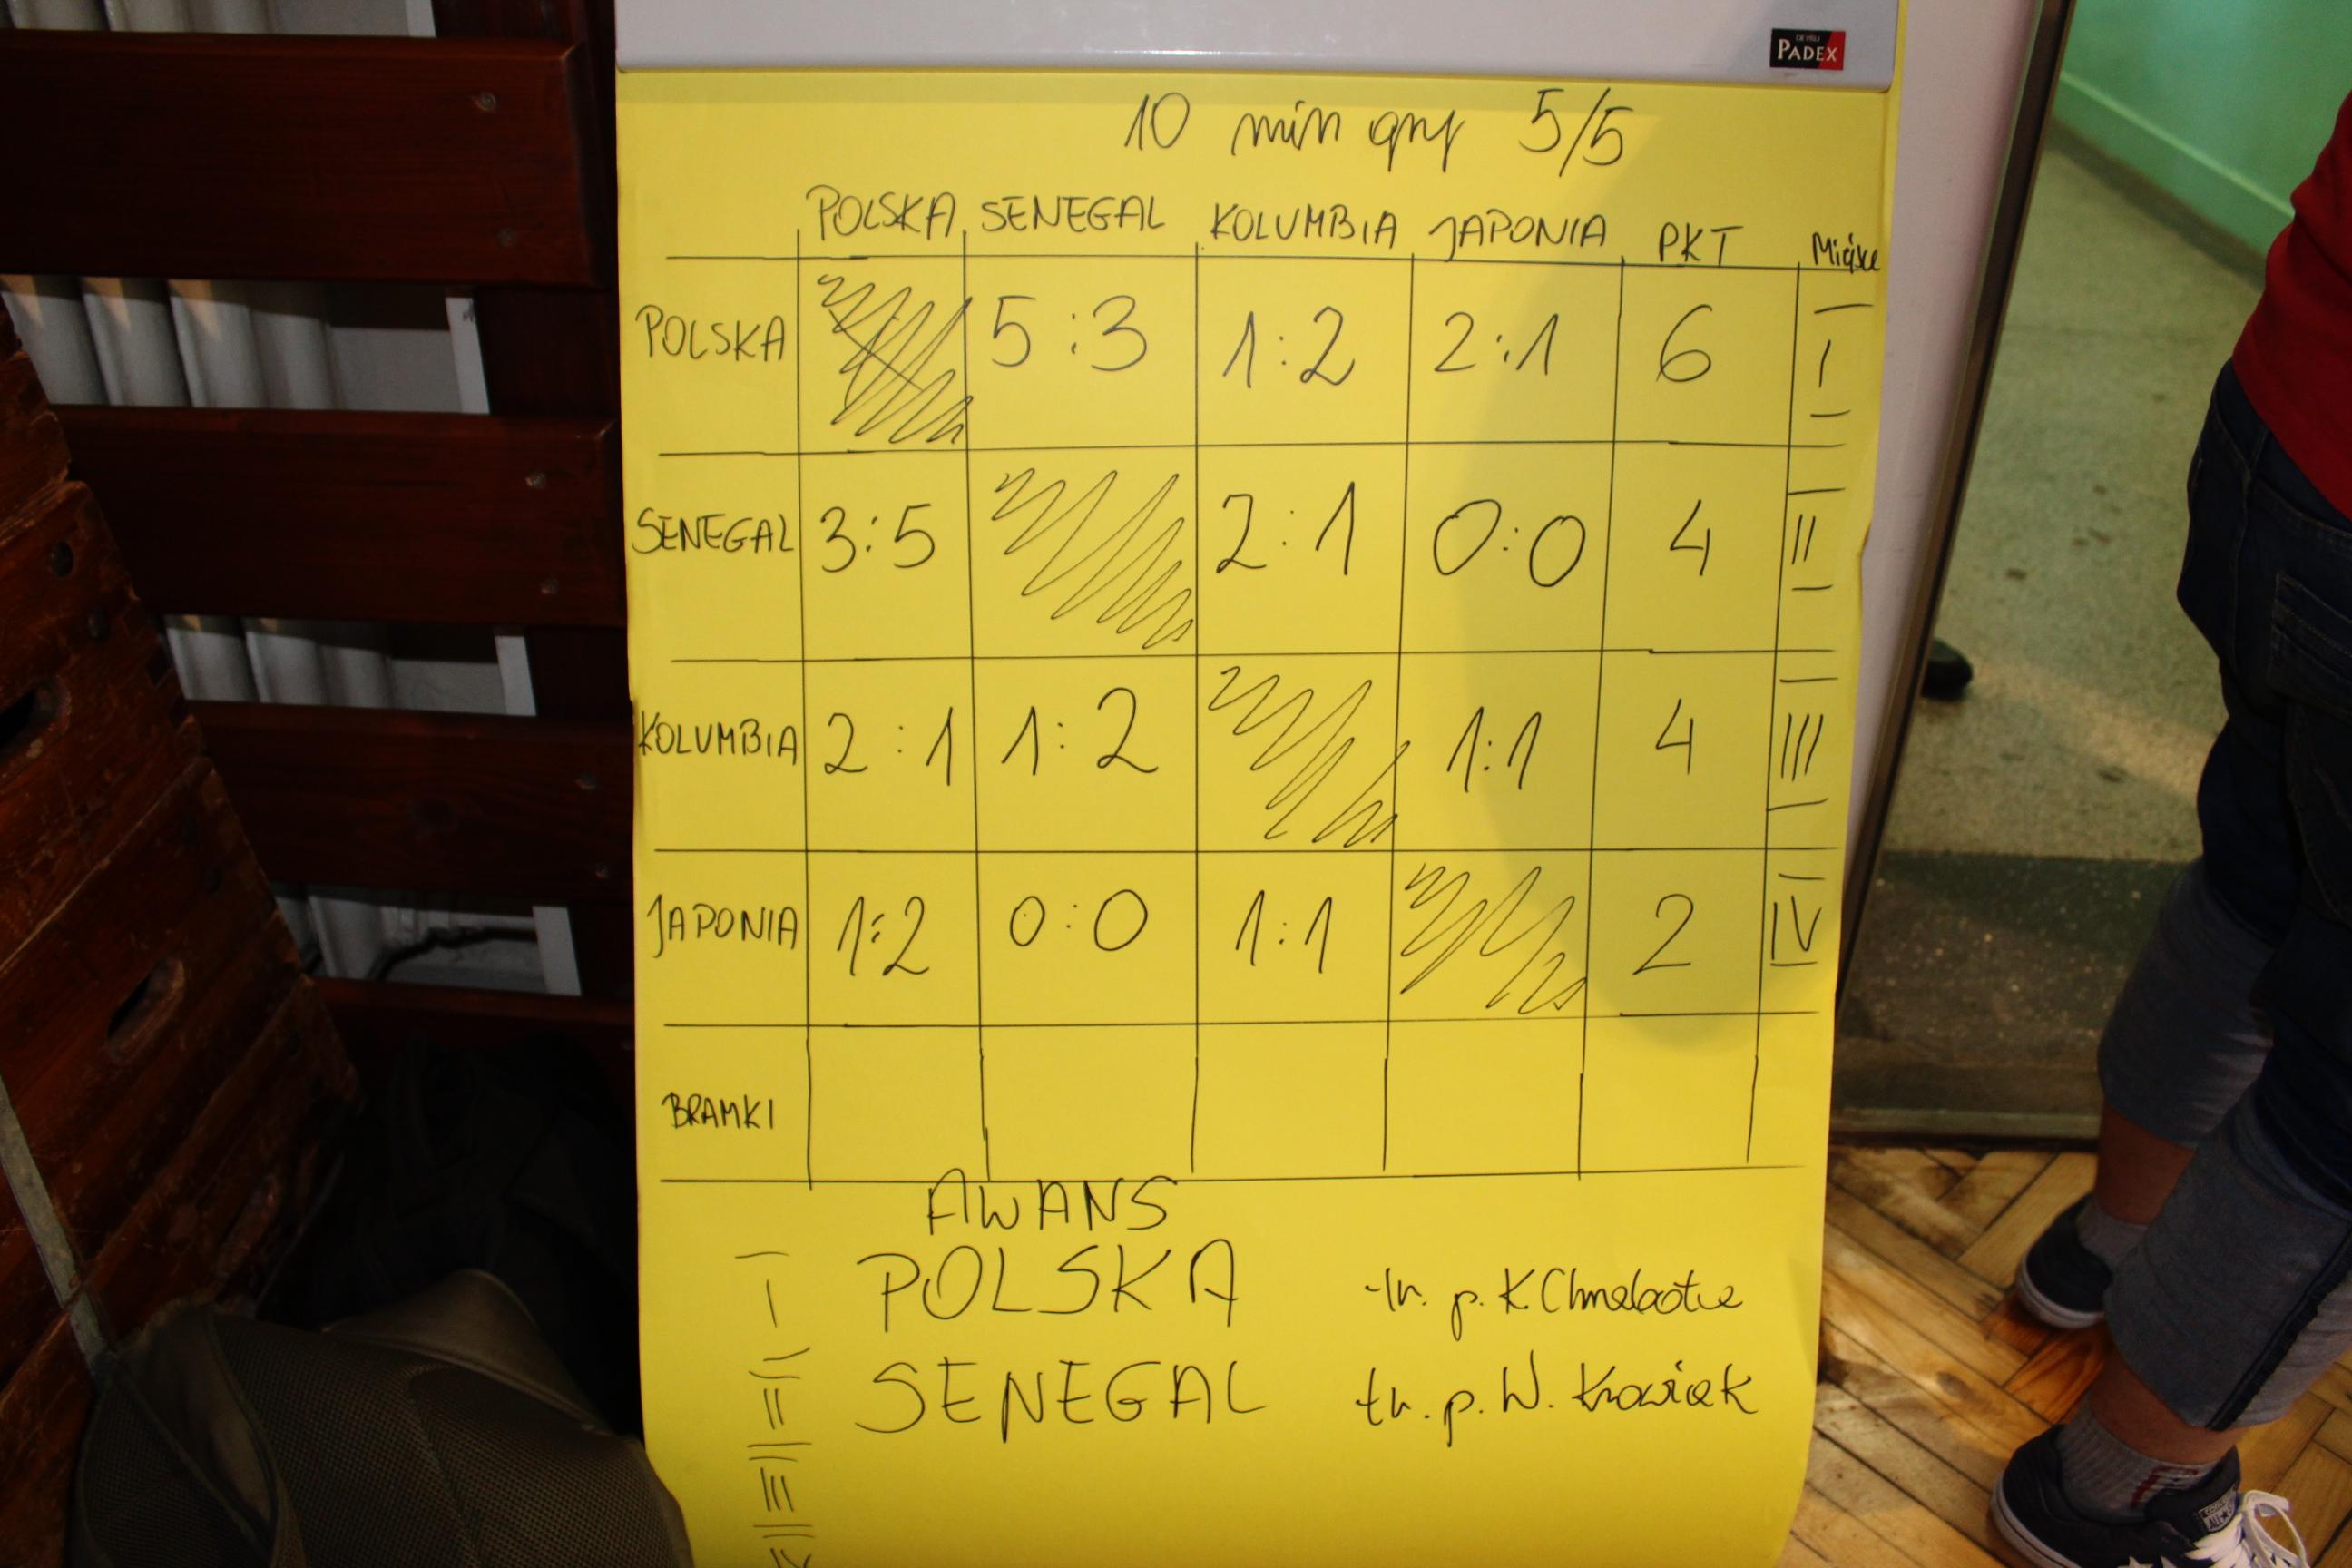 DE VISU
PADEX
10 min gry 5/5
POLSKA SENEGAL KOLUMBIA JAPONIA PKT
POLSKA 5:3 1:2 2:1 6 I
SENEGAL 3:5 2:1 0:0 4 II
KOLUMBIA 2:1 1:2 1:1 4 III
JAPONIA 1:2 0:0 1:1 2 IV
BRAMKI
AWANS
I POLSKA tr. p. K.
II SENEGAL tr. p. W.
III